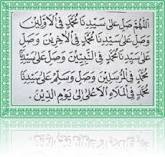 اللَّهُمَّ صَلِّ عَلَى سَيِّدِنَا مُحَمَّدٍ فِي الْأَوَّلِينَ
وَصَلِّ عَلَى سَيِّدِنَا مُحَمَّدٍ فِي الْآخِرِينَ وَصَلِّ
عَلَى سَيِّدِنَا مُحَمَّدٍ فِي النَّبِيِّينَ وَصَلِّ عَلَى سَيِّدِنَا
مُحَمَّدٍ فِي الْمُرْسَلِينَ وَصَلِّ وَسَلِّمْ عَلَى سَيِّدِنَا مُحَمَّدٍ
فِي الْمَلَإِ الْأَعْلَى إِلَى يَوْمِ الدِّينِ